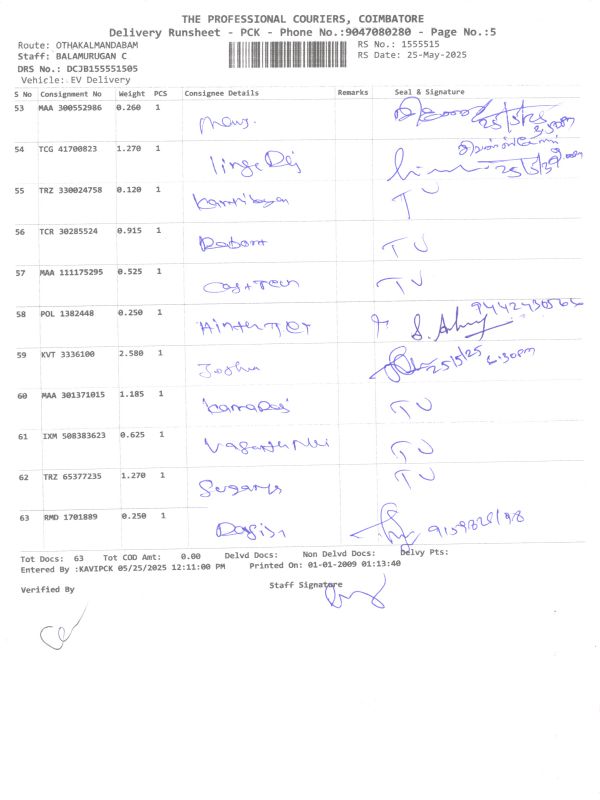 THE PROFESSIONAL COURIERS, COIMBATORE
Delivery Runsheet - PCK - Phone No.:9047080280 - Page No.:5
Route: OTHAKALMANDABAM RS No.: 1555515
Staff: BALAMURUGAN C RS Date: 25-May-2025
DRS No.: DCJB155551505
Vehicle: EV Delivery
S No Consignment No Weight PCS Consignee Details Remarks Seal & Signature
53 MAA 300552986 0.260 1 25/5/25
54 TCG 41700823 1.270 1 lingeRaj 25/5/25
55 TRZ 330024758 0.120 1 TU
56 TCR 30285524 0.915 1 TU
57 MAA 111175295 0.525 1 TU
58 POL 1382448 0.250 1
59 KVT 3336100 2.580 1 Joshua 25/5/25
60 MAA 301371015 1.185 1 KamaRaj TU
61 IXM 508383623 0.625 1 TU
62 TRZ 65377235 1.270 1 Suganya TU
63 RMD 1701889 0.250 1
Tot Docs: 63 Tot COD Amt: 0.00 Delvd Docs: Non Delvd Docs: Delvy Pts:
Entered By :KAVIPCK 05/25/2025 12:11:00 PM Printed On: 01-01-2009 01:13:40
Verified By Staff Signature